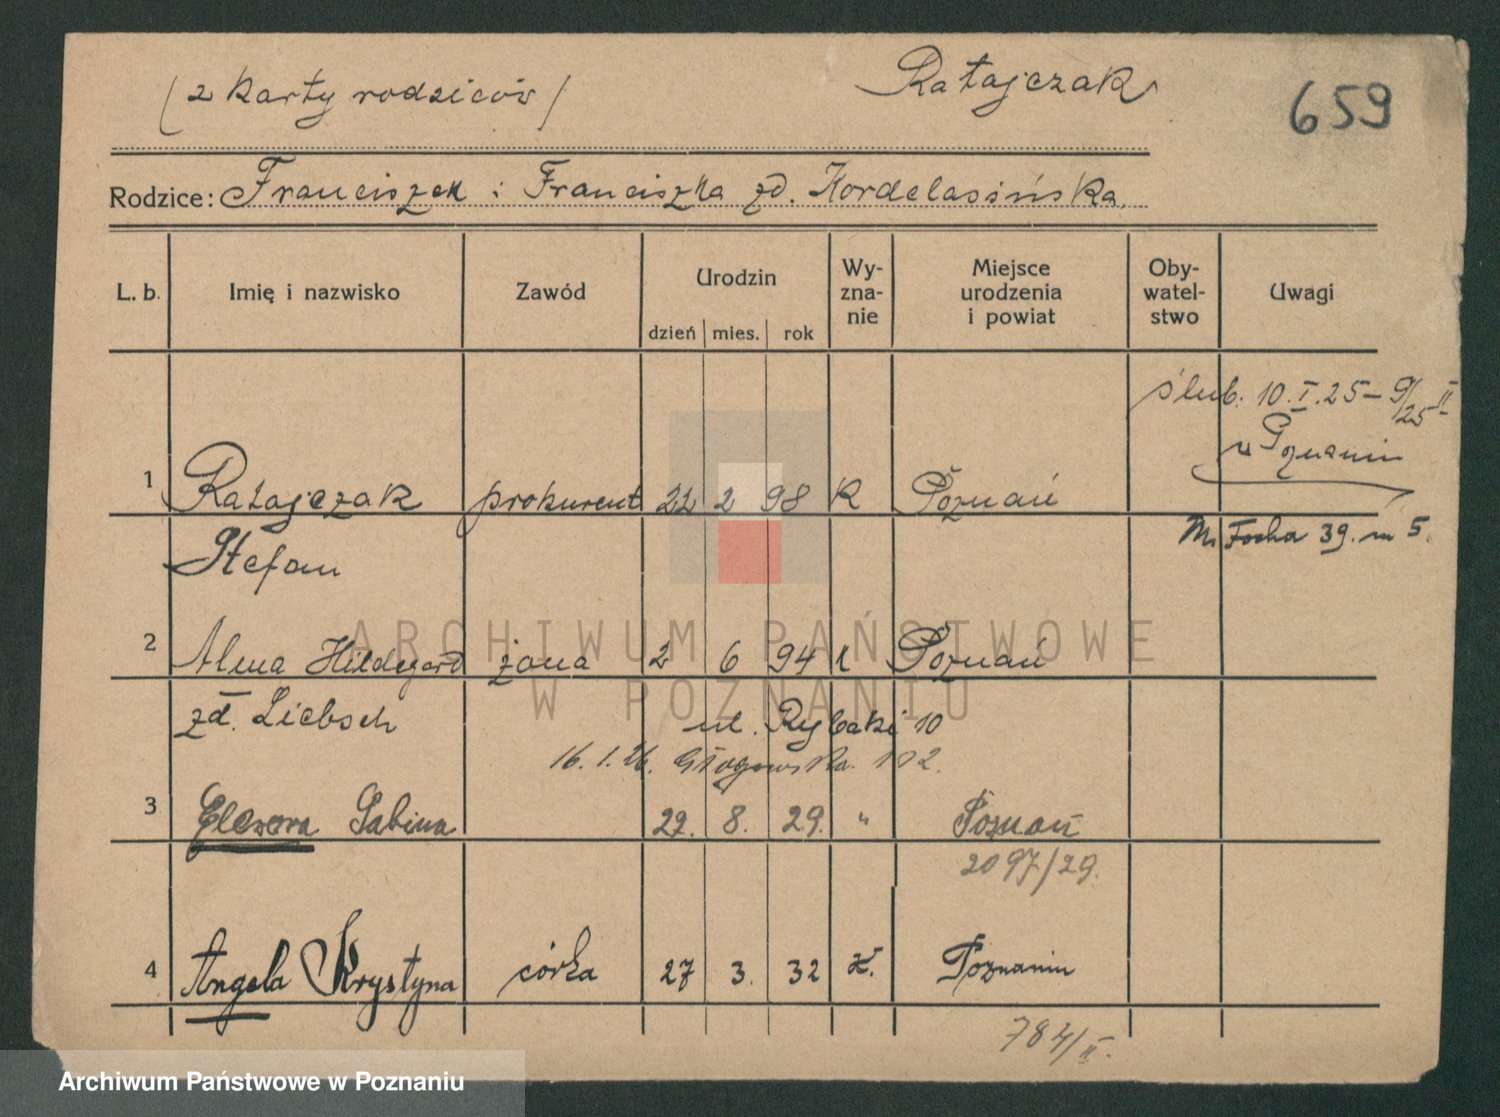 (2 karty rodziców)
Ratajczak
659
Rodzice: Franciszek i Franciszka zd. Kordelasińska
L. b.
Imię i nazwisko
Zawód
Urodzin
dzień mies. rok
Wy-
zna-
nie
Miejsce
urodzenia
i powiat
Oby-
watel-
stwo
Uwagi
ślub. 10.I.25 – 9/II 25
w Poznaniu
1 Ratajczak prokurent 22 2 98 K Poznań
Stefan
M. Focha 39. m 5.
2 Alma Hildegard żona 2 6 94 k Poznań
zd. Liebsch ul. Rybaki 10
16.1.26. Głogowska 102.
3 Sabina 29. 8. 29. " Poznań
2097/29.
4 Angela Krystyna córka 27 3. 32 K. Poznaniu
784/II.
ARCHIWUM PAŃSTWOWE
W POZNANIU
Archiwum Państwowe w Poznaniu